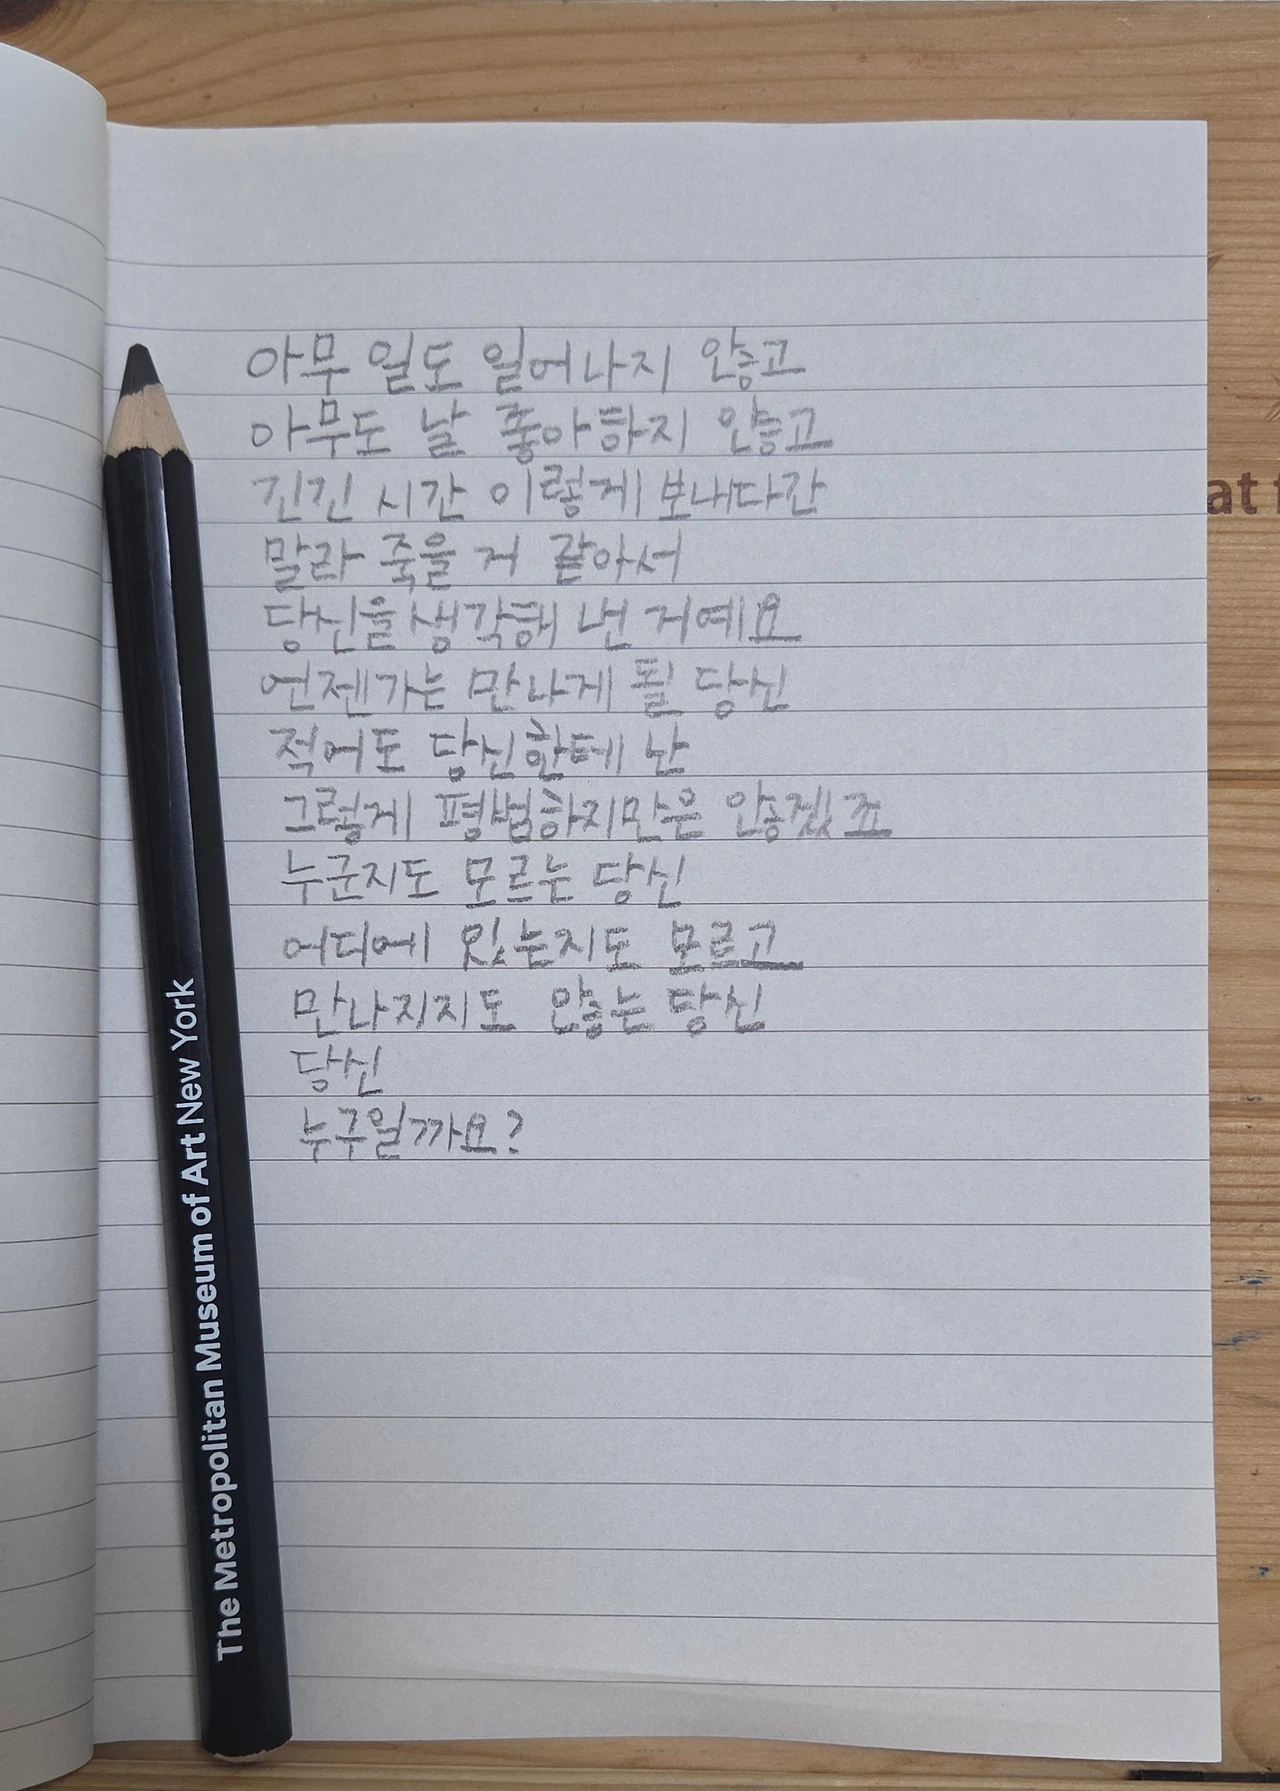 아무 일도 일어나지 않고
아무도 날 좋아하지 않고
긴긴 시간 이렇게 보내다간
말라 죽을 거 같아서
당신을 생각해 낸 거예요
언젠가는 만나게 될 당신
적어도 당신한테 난
그렇게 평범하지만은 않겠죠
누군지도 모르는 당신
어디에 있는지도 모르고
만나지지도 않는 당신
당신
누구일까요?
The Metropolitan Museum of Art New York
at